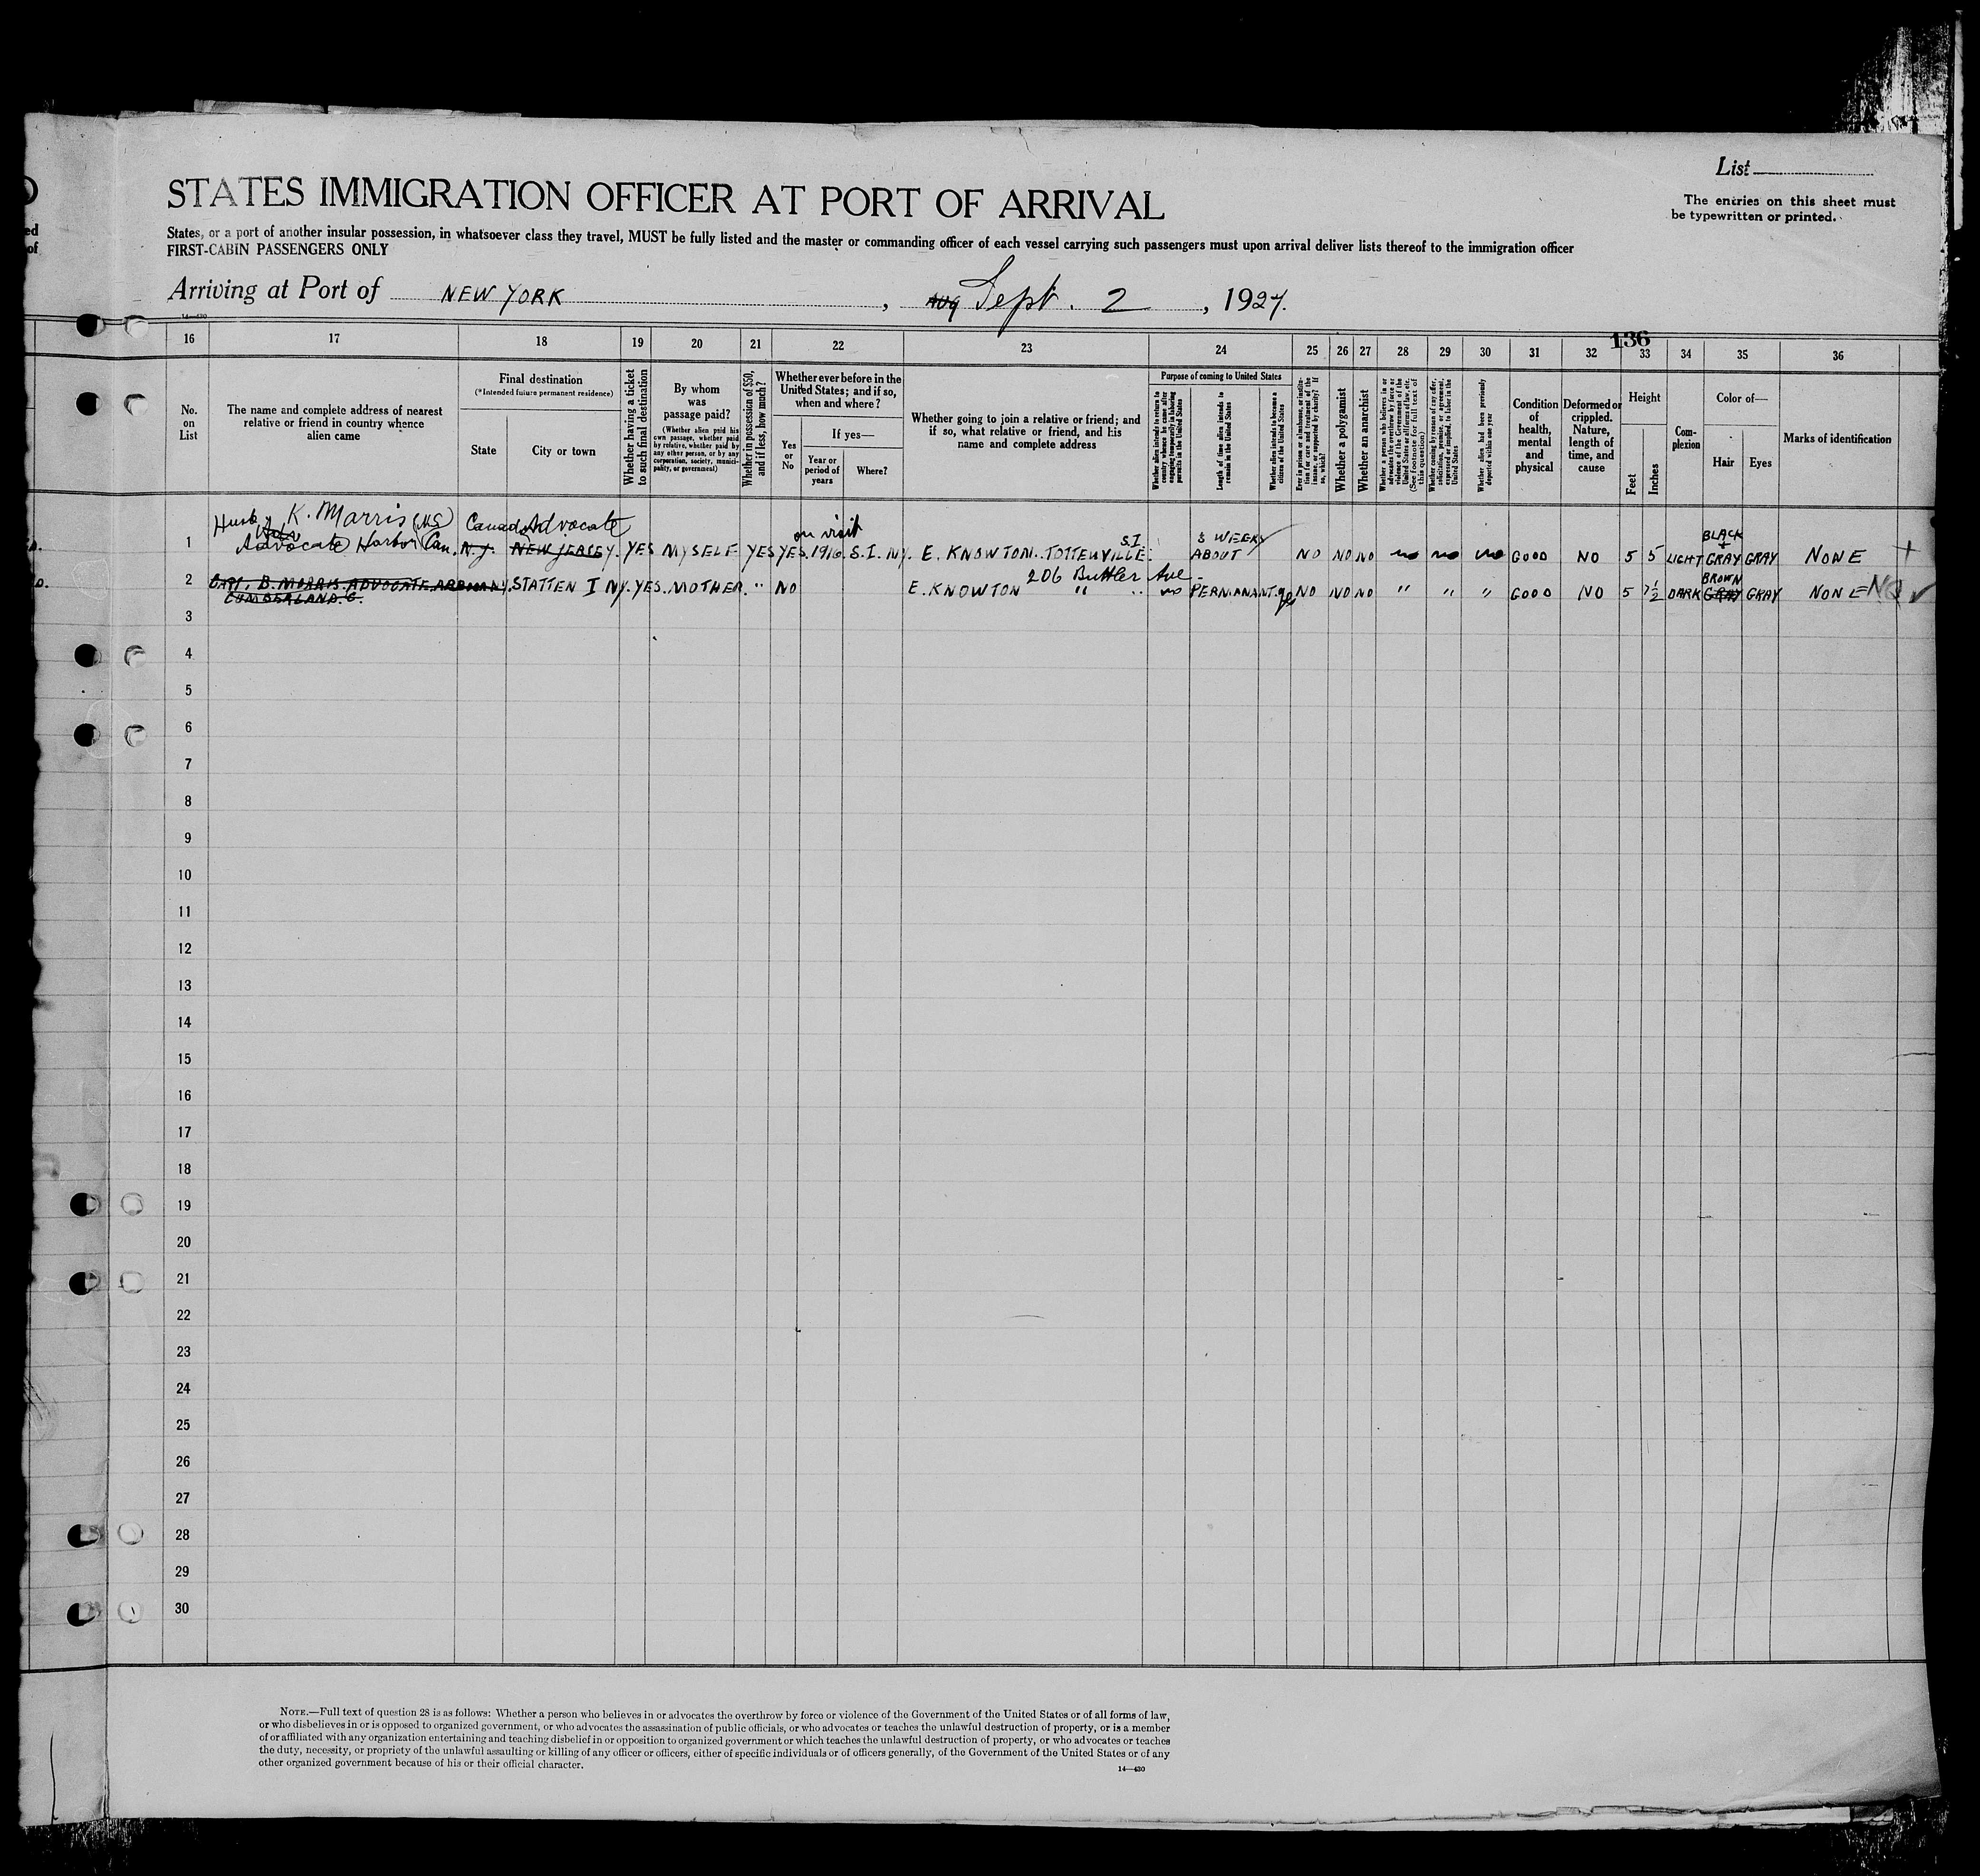 List
The entries on this sheet must
be typewritten or printed.
STATES IMMIGRATION OFFICER AT PORT OF ARRIVAL
ed
of
States, or a port of another insular possession, in whatsoever class they travel, MUST be fully listed and the master or commanding officer of each vessel carrying such passengers must upon arrival deliver lists thereof to the immigration officer
FIRST-CABIN PASSENGERS ONLY
Arriving at Port of NEW YORK, Aug Sept. 2, 1927.
14—430
136
16 17 18 19 20 21 22 23 24 25 26 27 28 29 30 31 32 33 34 35 36
No.
on
List
The name and complete address of nearest
relative or friend in country whence
alien came
Final destination
(*Intended future permanent residence)
State
City or town
Whether having a ticket
to such final destination
By whom
was
passage paid?
(Whether alien paid his
own passage, whether paid
by relative, whether paid by
any other person, or by any
corporation, society, munici-
pality, or government)
Whether in possession of $50,
and if less, how much?
Whether ever before in the
United States; and if so,
when and where?
Yes
or
No
If yes—
Year or
period of
years
Where?
Whether going to join a relative or friend; and
if so, what relative or friend, and his
name and complete address
Purpose of coming to United States
Whether alien intends to return to
country whence he came after
engaging temporarily in laboring
pursuits in the United States
Length of time alien intends to
remain in the United States
Whether alien intends to become a
citizen of the United States
Ever in prison or almshouse, or institu-
tion for care and treatment of the
insane, or supported by charity? If
so, which?
Whether a polygamist
Whether an anarchist
Whether a person who believes in or
advocates the overthrow by force or
violence of the Government of the
United States or all forms of law, etc.
(See footnote for full text of
this question)
Whether coming by reason of any offer,
solicitation, promise, or agreement,
expressed or implied, to labor in the
United States
Whether alien had been previously
deported within one year
Condition
of
health,
mental
and
physical
Deformed or
crippled.
Nature,
length of
time, and
cause
Height
Feet
Inches
Com-
plexion
Color of—
Hair
Eyes
Marks of identification
Husb K. Morris (NS) Canada Advocate on visit S.I. 3 WEEKS BLACK +
1 Advocate Harbor Can. N.J. NEW JERSEY. YES MYSELF YES YES. 1916. S.I. NY. E. KNOWTON. TOTTENVILLE. ABOUT NO NO NO no no no GOOD NO 5 5 LIGHT GRAY GRAY NONE +
206 Buttler Ave. BROWN
2 CAPT. B. MORRIS. ADVOCATE N.Y. STATTEN I NY. YES. MOTHER. " NO E. KNOWTON " " no PERMANANT. yes NO NO NO " " " GOOD NO 5 7½ DARK GRAY GRAY NONE NQ ✓
CUMBERLAND. C.
3
4
5
6
7
8
9
10
11
12
13
14
15
16
17
18
19
20
21
22
23
24
25
26
27
28
29
30
NOTE.—Full text of question 28 is as follows: Whether a person who believes in or advocates the overthrow by force or violence of the Government of the United States or of all forms of law,
or who disbelieves in or is opposed to organized government, or who advocates the assassination of public officials, or who advocates or teaches the unlawful destruction of property, or is a member
of or affiliated with any organization entertaining and teaching disbelief in or opposition to organized government or which teaches the unlawful destruction of property, or who advocates or teaches
the duty, necessity, or propriety of the unlawful assaulting or killing of any officer or officers, either of specific individuals or of officers generally, of the Government of the United States or of any
other organized government because of his or their official character.
14—430